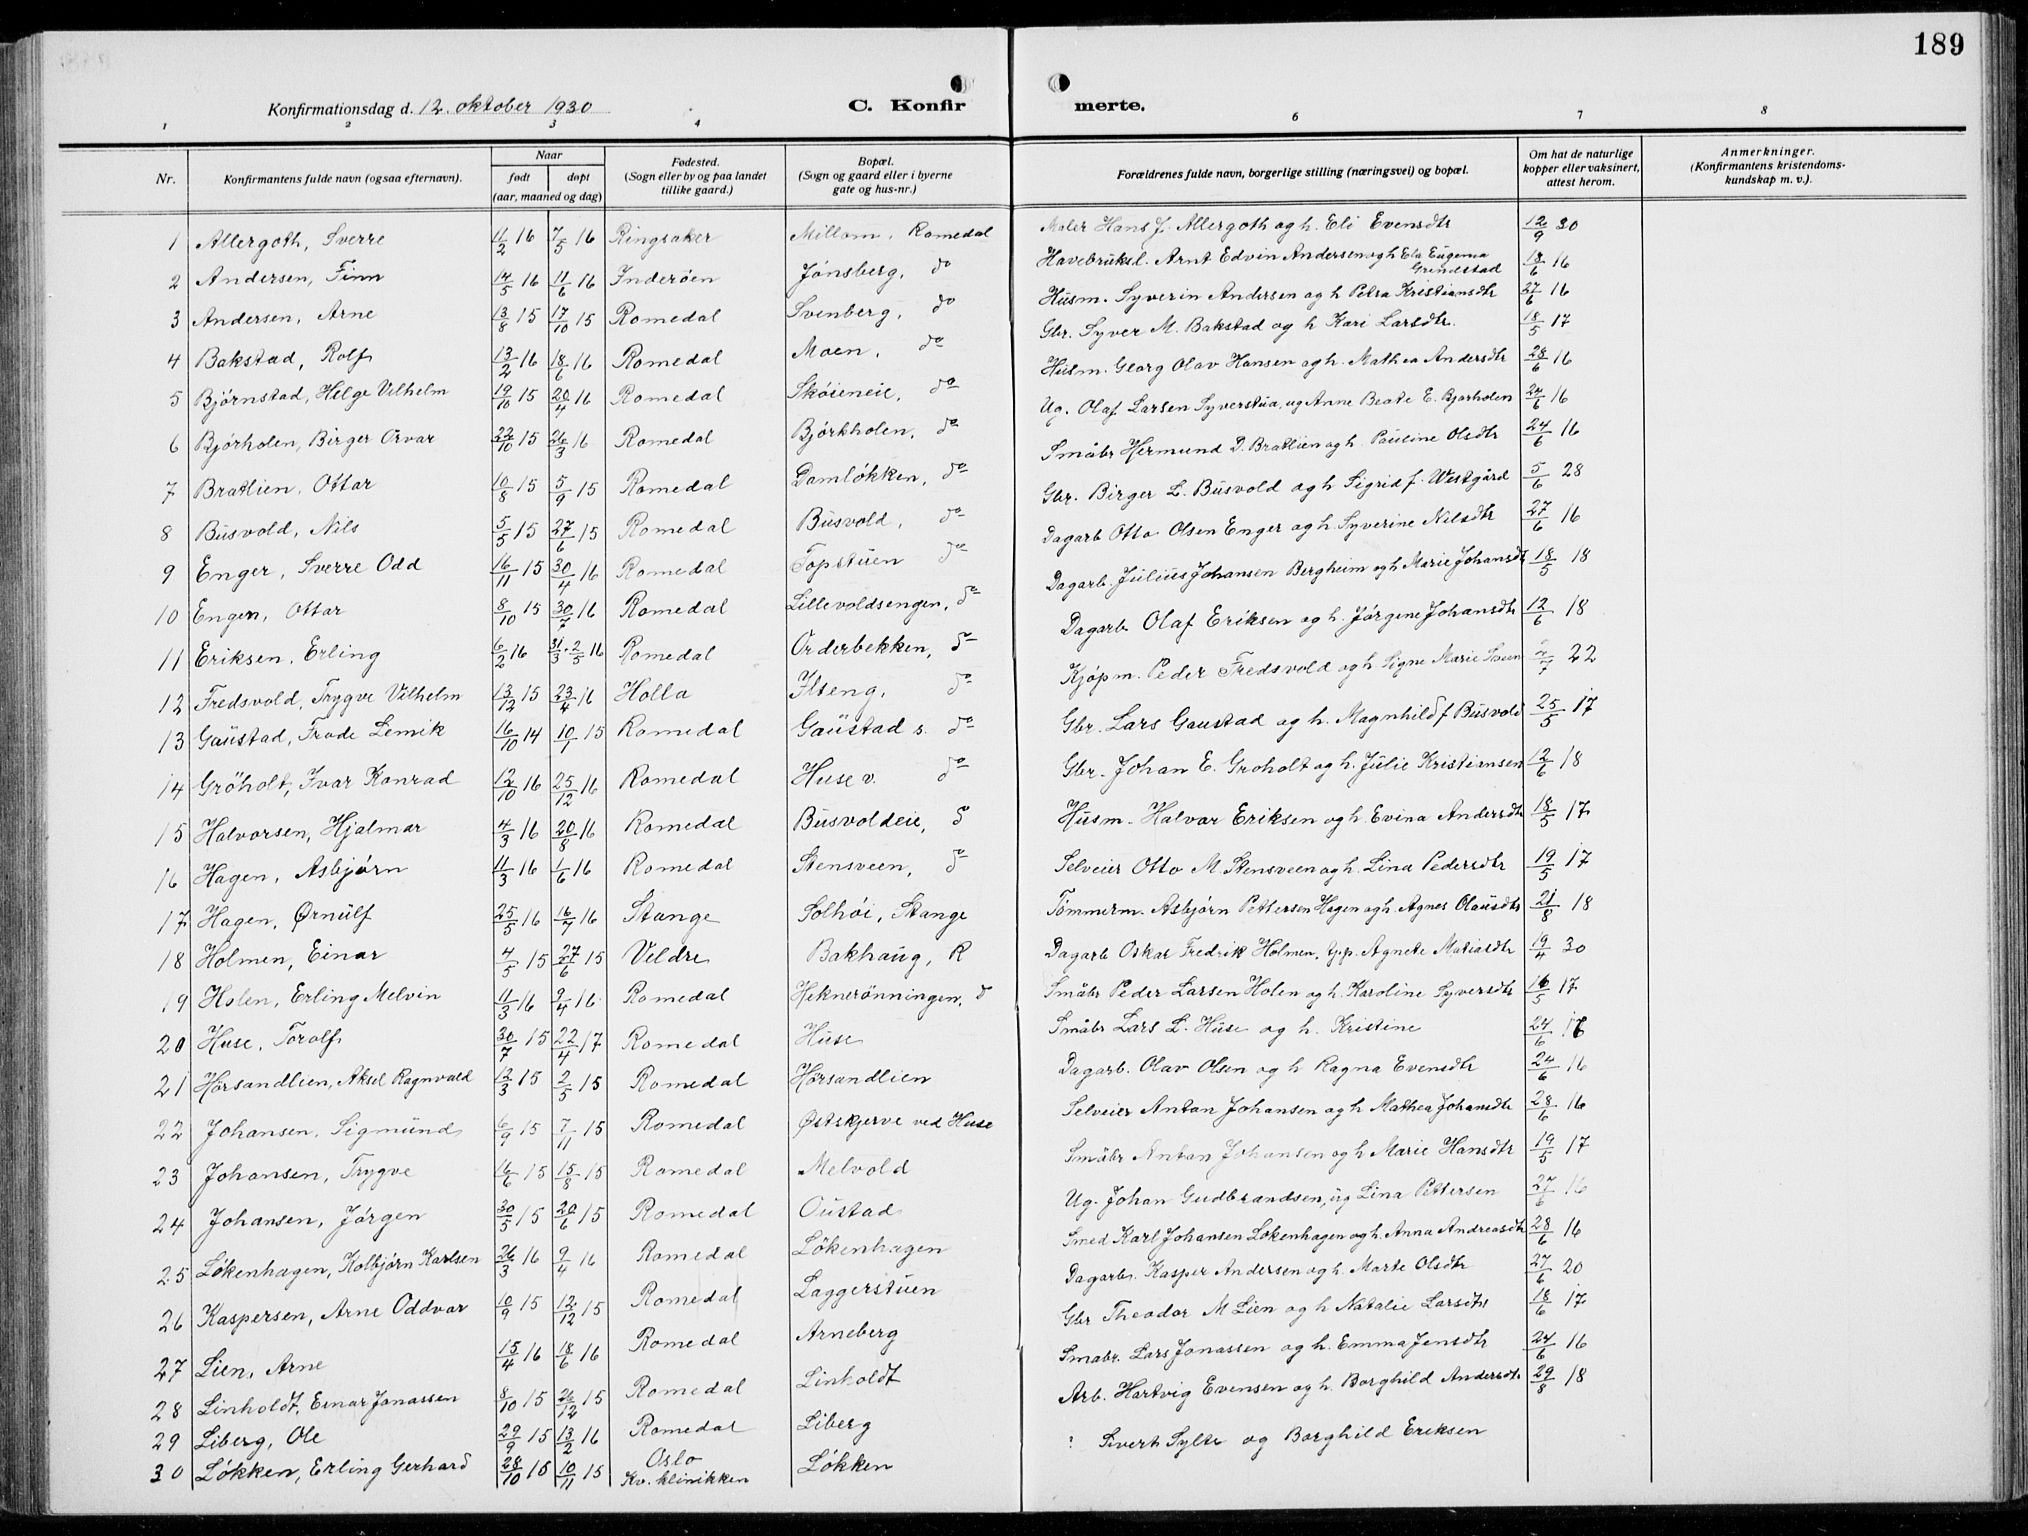 189
Konfirmationsdag d. 12. oktober 1930
C. Konfir merte.
1 2 3 4 6 7 8
Nr.
Konfirmantens fulde navn (ogsaa efternavn).
Naar
født døpt
(aar, maaned og dag)
Fødested.
(Sogn eller by og paa landet
tillike gaard.)
Bopæl.
(Sogn og gaard eller i byerne
gate og hus-nr.)
Forældrenes fulde navn, borgerlige stilling (næringsvei) og bopæl.
Om hat de naturlige
kopper eller vaksinert,
attest herom.
Anmerkninger.
(Konfirmantens kristendoms-
kundskap m. v.).
1 Allergoth, Sverre 11/2 16 7/5 16 Ringsaker Millom, Romedal Maler Hans J. Allergoth og h. Eli Evensdtr 12/9 30
2 Andersen, Finn 14/5 16 11/6 16 Inderöen Jønsberg, do Havebruksl. Arnt Edvin Andersen og h Ela Eugenia Grindstad 18/6 16
3 Andersen, Arne 13/8 15 17/10 15 Romedal Svenberg, do Husm. Syverin Andersen og h Petra Kristiansdtr 27/6 16
4 Bakstad, Rolf 13/2 16 18/6 16 Romedal Moen, do Gbr. Syver M. Bakstad og h Kari Larsdtr. 18/5 17
5 Bjørnstad, Helge Vilhelm 19/10 15 20/4 16 Romedal Skøieneie, do Husm. Georg Olav Hansen og h. Mathea Andersdtr 28/6 16
6 Bjørholen, Birger Orvar 22/10 15 26/3 16 Romedal Bjørkholen, do Ug. Olaf Larsen Syverstua, ug Anne Beate E. Bjørholen 24/6 16
7 Bratlien, Ottar 10/8 15 5/9 15 Romedal Damløkken, do Småbr Hermund D. Bratlien og h. Pauline Olsdtr 24/6 16
8 Busvold, Nils 5/5 15 27/6 15 Romedal Busvold, do Gbr. Birger L. Busvold og h Sigrid f. Westgård 5/6 28
9 Enger, Sverre Odd 16/11 15 30/4 16 Romedal Topstuen do Dagarb Otto Olsen Enger og h. Syverine Nilsdtr 27/6 16
10 Engen, Ottar 8/10 15 30/7 16 Romedal Lillevoldsengen, do Dagarb. Julius Johansen Bergheim og h Marie Johansdtr 18/5 18
11 Eriksen, Erling 6/2 16 31/3 - 2/5 16 Romedal Orderbekken, do Dagarb Olaf Eriksen og h. Jørgine Johansdtr 12/6 18
12 Fredsvold, Trygve Vilhelm 13/12 15 23/4 16 Holla Ilseng, do Kjøpm. Peder Fredsvold og h Signe Marie Sveen 2/7 22
13 Gaustad, Frode Lemik 16/10 14 10/1 15 Romedal Gaustad s. do Gbr. Lars Gaustad og h. Magnhild f Busvold 25/5 17
14 Grøholt, Ivar Konrad 12/10 16 25/12 16 Romedal Huse v. do Gbr. Johan E. Groholt og h. Julie Kristiansen 12/6 18
15 Halvorsen, Hjalmar 4/3 16 20/8 16 Romedal Busvoldeie, do Husm. Halvor Eriksen og h Evina Andersdtr 18/5 17
16 Hagen, Asbjørn 11/3 16 1/6 16 Romedal Stensveen, do Selveier Otto M. Stensveen og h. Lina Pedersdtr 19/5 17
17 Hagen, Ørnulf 25/5 16 16/7 16 Stange Solhøi, Stange Tømmerm. Asbjørn Pettersen Hagen og h. Agnes Olausdtr 21/8 18
18 Holmen, Einar 4/5 15 27/6 15 Veldre Bakhaug, R Dagarb Oskar Fredrik Holmen, tj.p. Agnete Matiasdtr 19/4 30
19 Holen, Erling Melvin 11/3 16 9/4 16 Romedal Heknerønningen, do Småbr Peder Larsen Holen og h. Karoline Syversdtr 16/5 17
20 Huse, Torolf 30/7 15 22/4 17 Romedal Huse Småbr Lars L. Huse og h. Kristine 24/6 16
21 Hørsandlien, Aksel Ragnvald 12/3 15 2/5 15 Romedal Hørsandlien Dagarb. Olav Olsen og h Ragna Evensdtr 24/6 16
22 Johansen, Sigmund 6/9 15 7/11 15 Romedal Østskjerve ved Huse Selveier Anton Johansen og h Mathea Johansdtr 28/6 16
23 Johansen, Trygve 16/6 15 15/8 15 Romedal Melvold Småbr Anton Johansen og h Marie Hansdtr 19/5 17
24 Johansen, Jørgen 30/5 15 20/6 15 Romedal Oustad Ug. Johan Gudbrandsen, ug Lina Pettersen 27/6 16
25 Løkenhagen, Kolbjørn Karlsen 26/3 16 9/4 16 Romedal Løkenhagen Smed Karl Johansen Løkenhagen og h. Anna Andreasdtr 28/6 16
26 Kaspersen, Arne Oddvar 10/9 15 12/12 15 Romedal Laggerstuen Dagarb. Kasper Andersen og h. Marte Olsdtr 27/6 20
27 Lien, Arne 15/4 16 18/6 16 Romedal Arneberg Gbr Theodor M Lien og h Natalie Larsdtr 18/6 17
28 Linholdt, Einar Jonassen 8/10 15 26/12 15 Romedal Linholdt Småbr. Lars Jonassen og h. Emma Jensdtr 24/6 16
29 Liberg, Ole 29/9 15 13/2 16 Romedal Liberg Arb. Hartvig Evensen og h. Borghild Andersdtr 29/8 18
30 Løkken, Erling Gerhard 28/10 15 10/11 15 Oslo Kv. klinikken Løkken ? Sivert Sylte og Borghild Eriksen